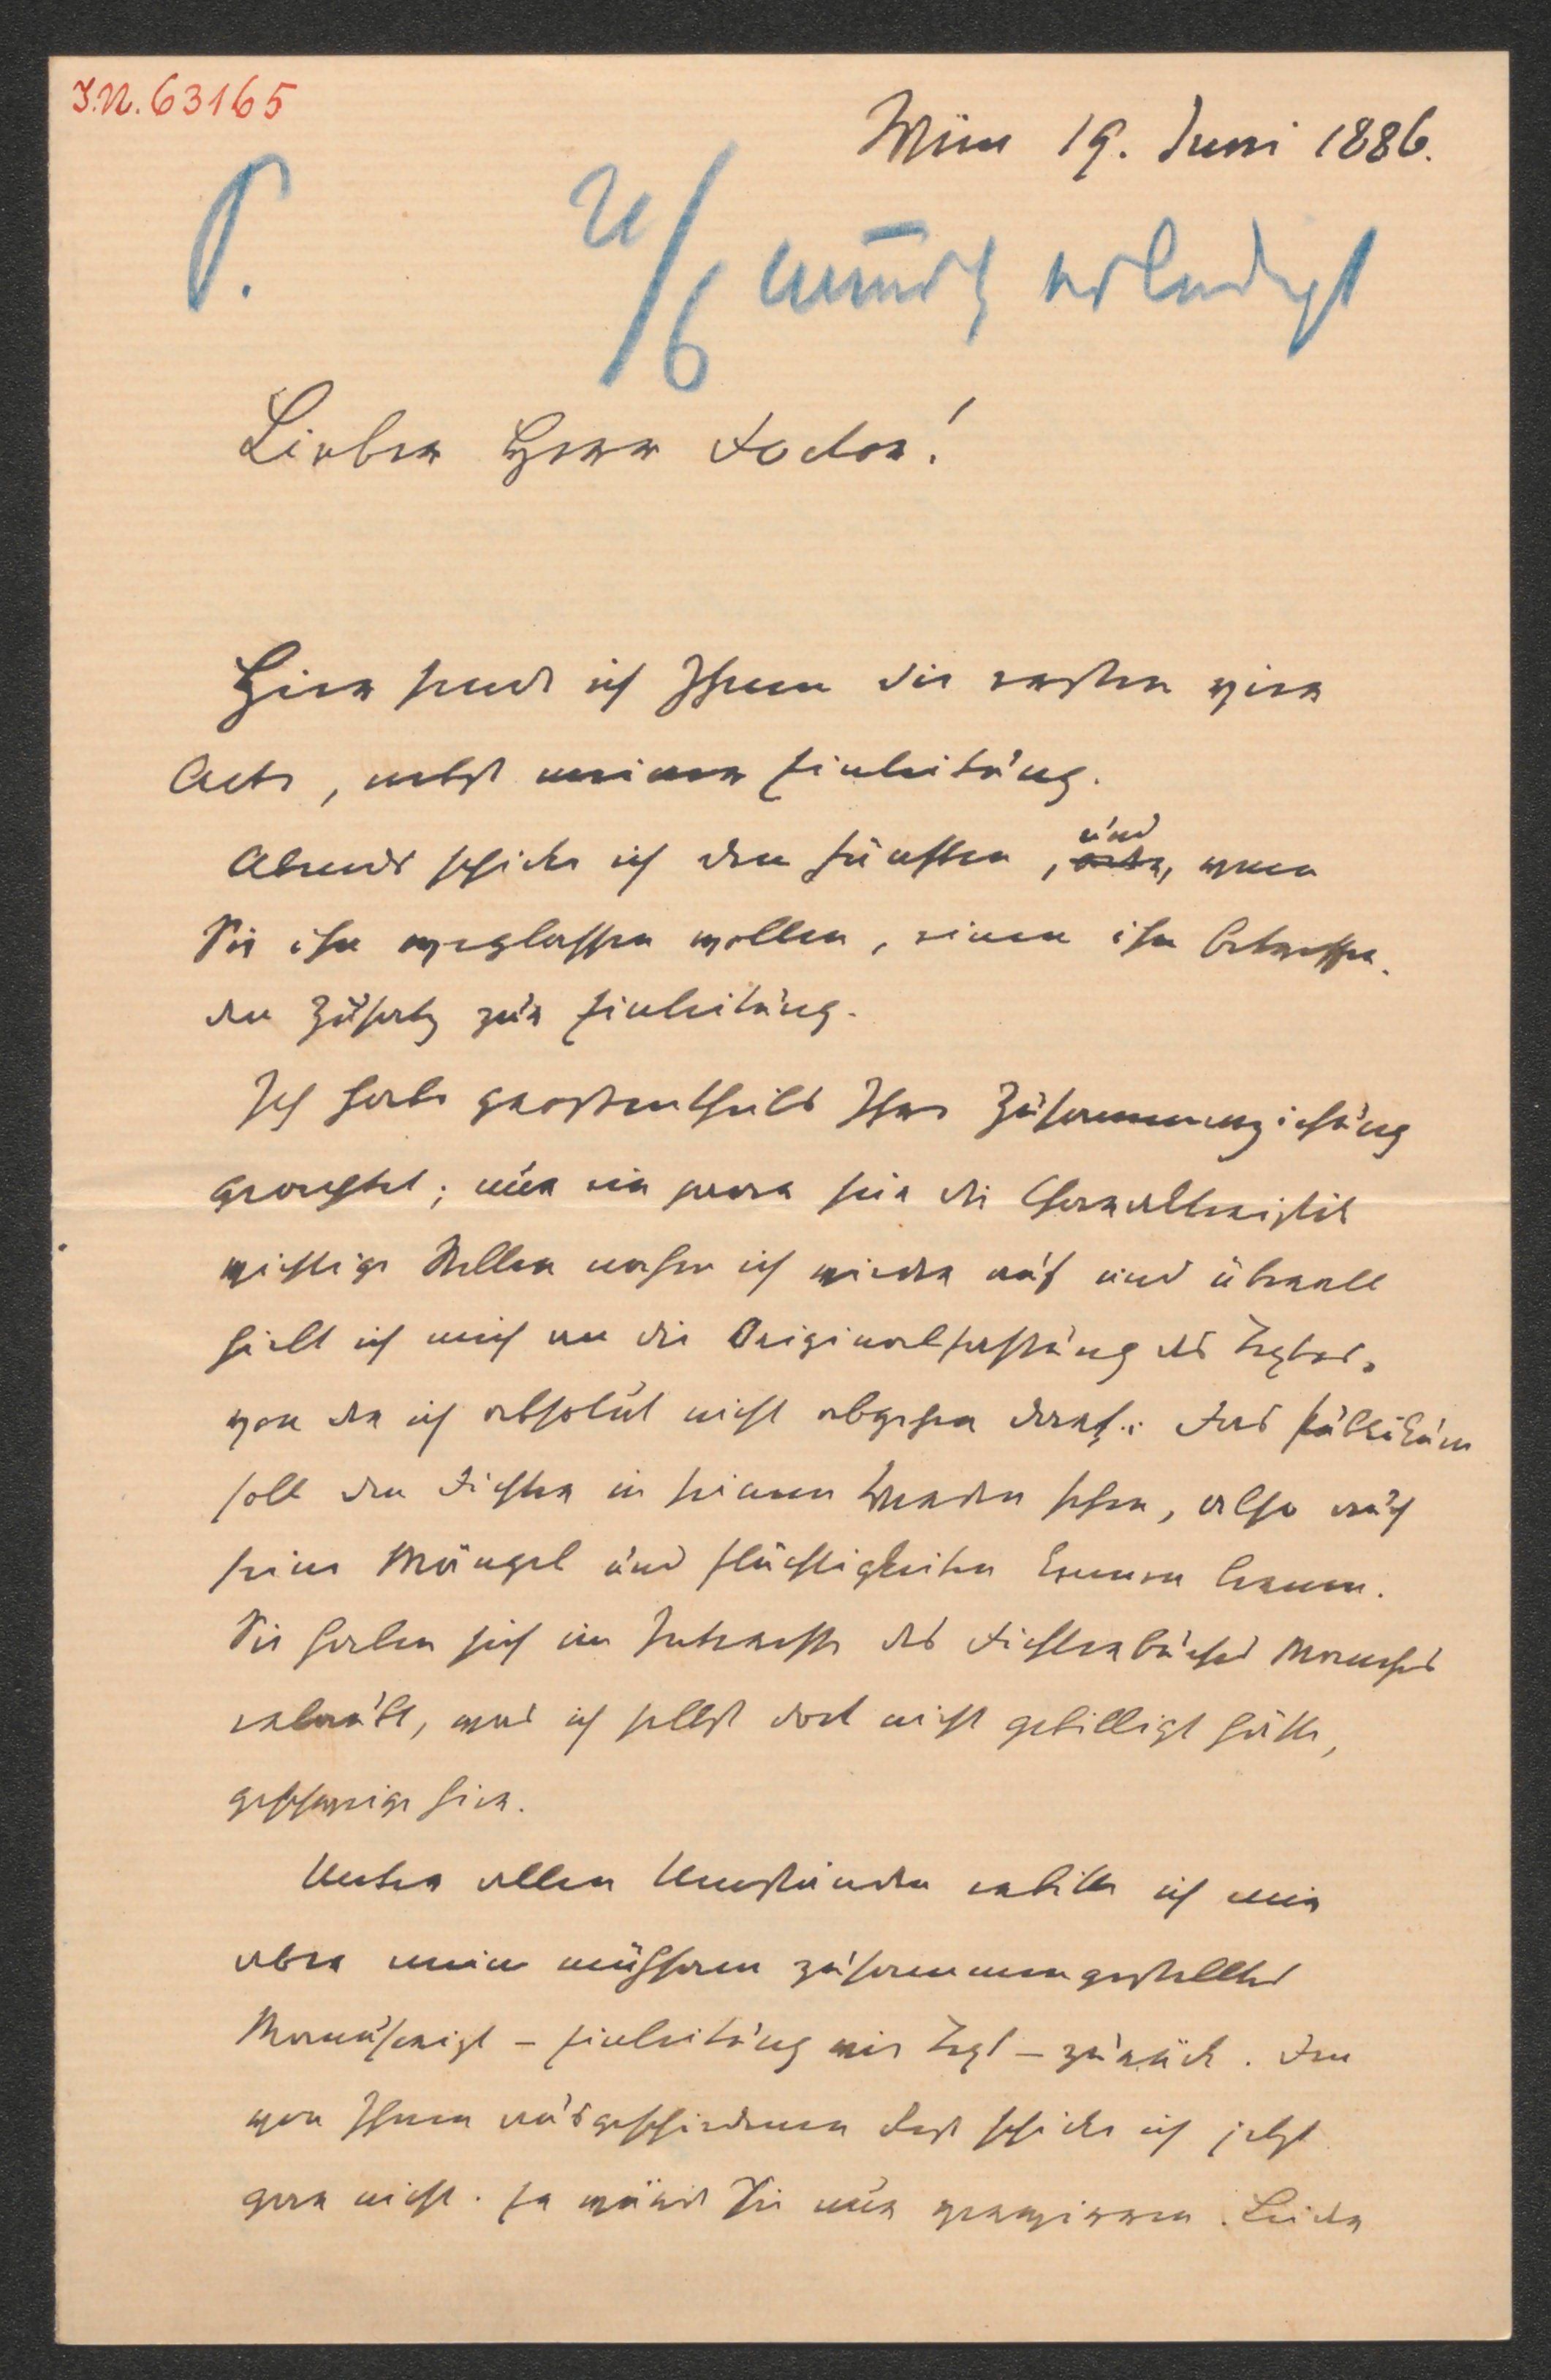 I.N. 63165
Wien 19. Juni 1886.
P. 21/6 mündl erledigt
Lieber Herr Doctor!
Hier sende ich Ihnen die ersten vier
Acte, nebst meiner Einleitung.
Abends schicke ich den fünften, und wenn
Sie ihn weglassen wollen, einen ihn betreffen-
den Zusatz zur Einleitung.
Ich habe grostentheils Ihre Zusammenziehung
geachtet; nur ein paar für die Charakteristik
wichtige Stellen nahm ich wieder auf und überall
hielt ich mich an die Originalfassung des Textes,
von der ich absolut nicht abgehen darf. Das Publikum
soll den Dichter in seinem Werden sehen, also auch
seine Mängel und Flüchtigkeiten kennen lernen.
Sie haben sich im Interesse des Dichterbuches Manches
erlaubt, was ich selbst dort nicht gebilligt hätte,
geschweige hier.
Unter allen Umständen erbitte ich mir
aber mein mühsam zusammengestelltes
Manuscript – Einleitung wie Text – zurück. Den
von Ihnen ausgeschiedenen Rest schicke ich jetzt
gar nicht. Er würde Sie nur verwirren. Leider